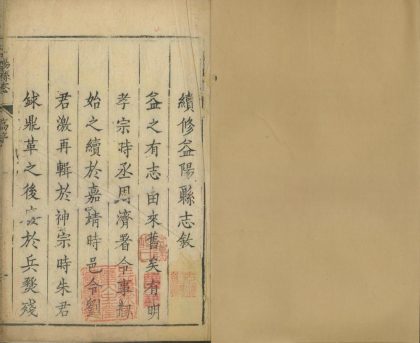 續修益陽縣志敘
益之有志由來舊矣有明
孝宗時丞周濟署令事創
始之續於嘉靖時邑令劉
君激再輯於神宗時朱君
錸鼎革之後文於兵燹殘